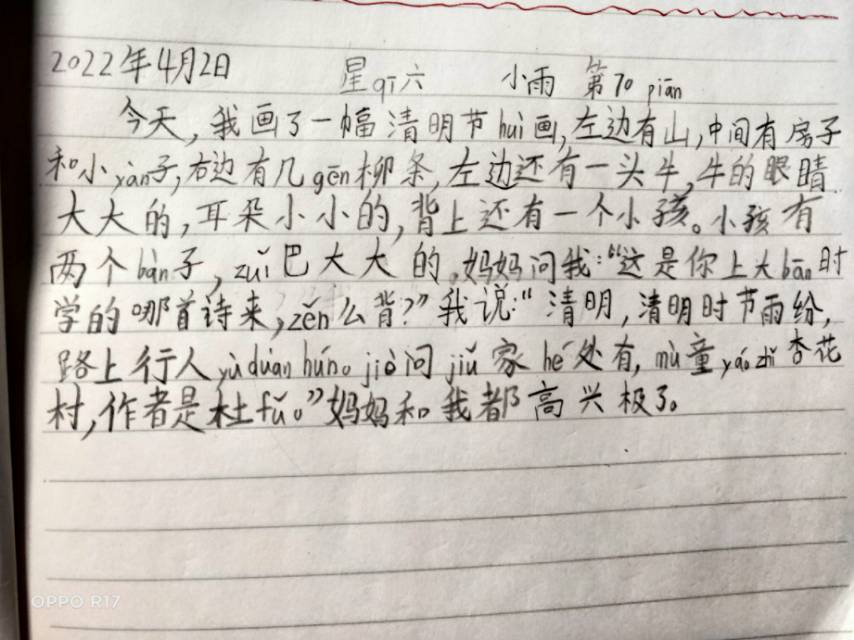 2022年4月2日 星qī六 小雨 第70piān
今天,我画了一幅清明节huì画,左边有山,中间有房子
和小yàn子,右边有几gēn柳条,左边还有一头牛,牛的眼睛
大大的,耳朵小小的,背上还有一个小孩。小孩有
两个biàn子,zuǐ巴大大的,妈妈问我:“这是你上大bān时
学的哪首诗来,zěn么背?”我说:“清明,清明时节雨纷,
路上行人yùduànhún。jiè问jiǔ家hé处有,mù童yáozhǐ杏花
村,作者是杜fǔ。”妈妈和我都高兴极了。
OPPO R17